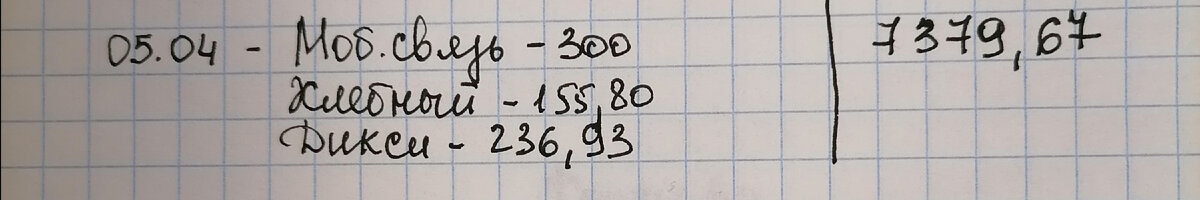 05.04 - Моб.связь - 300 7379,67
Хлебный - 155,80
Дикси - 236,93